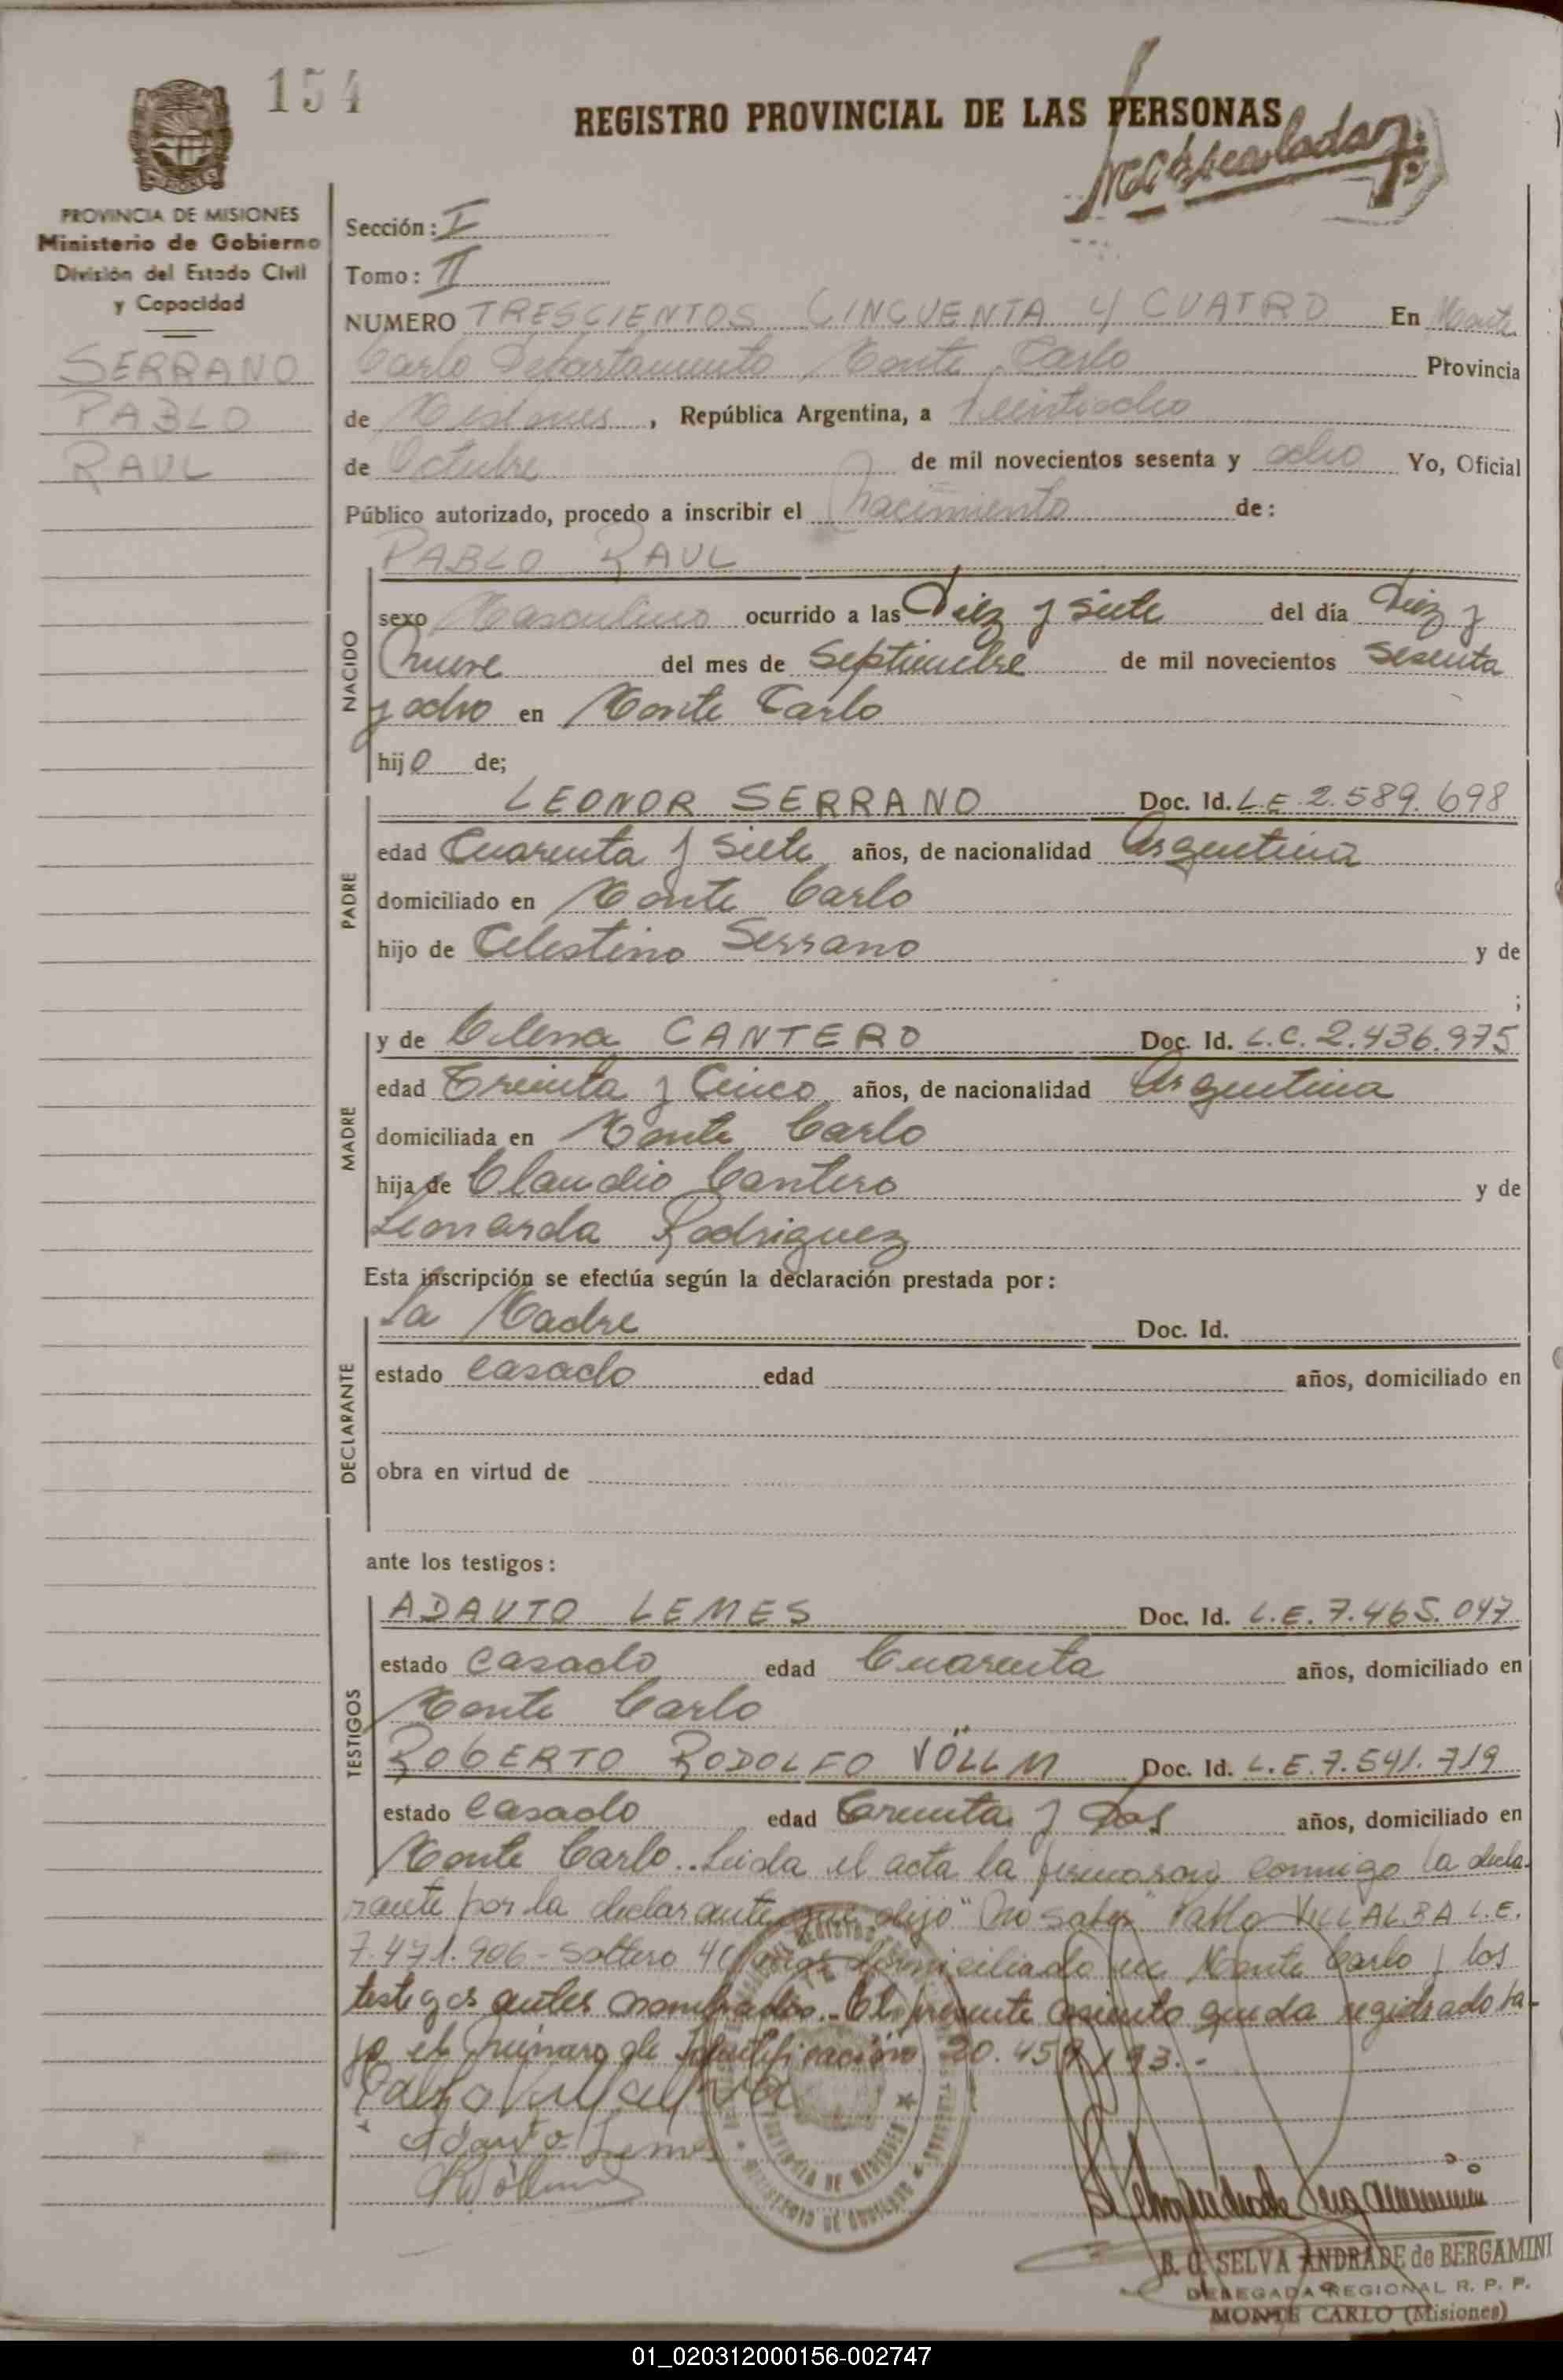 154
REGISTRO PROVINCIAL DE LAS PERSONAS
PROVINCIA DE MISIONES
Ministerio de Gobierno
División del Estado Civil
y Capacidad
SERRANO
PABLO
RAUL
Sección: I
Tomo: II
NUMERO TRESCIENTOS CINCUENTA Y CUATRO En Monte
Carlo Departamento Monte Carlo Provincia
de Misiones, República Argentina, a Veintiocho
de Octubre de mil novecientos sesenta y ocho Yo, Oficial
Público autorizado, procedo a inscribir el nacimiento de:
NACIDO
PABLO RAUL
sexo Masculino ocurrido a las Diez y siete del día Diez y
nueve del mes de Septiembre de mil novecientos Sesenta
y ocho en Monte Carlo
hijo de;
PADRE
LEONOR SERRANO Doc. Id. L.E. 2.589.698
edad Cuarenta y Siete años, de nacionalidad Argentina
domiciliado en Monte Carlo
hijo de Celestino Serrano y de
;
MADRE
y de Elena CANTERO Doc. Id. L.C. 2.436.975
edad Treinta y Cinco años, de nacionalidad Argentina
domiciliada en Monte Carlo
hija de Claudio Cantero y de
Leonarda Rodriguez
Esta inscripción se efectúa según la declaración prestada por:
DECLARANTE
La Madre Doc. Id.
estado casado edad años, domiciliado en
obra en virtud de
ante los testigos:
TESTIGOS
ADAUTO LEMES Doc. Id. L.E. 7.465.047
estado Casado edad Cuarenta años, domiciliado en
Monte Carlo
ROBERTO RODOLFO VÖLLM Doc. Id. L.E. 7.541.719
estado Casado edad Treinta y Dos años, domiciliado en
Monte Carlo. Leida el acta la firmaron conmigo la decla-
rante por la declarante que dijo "no saber" Pablo VILLALBA L.E.
7.471.906 - Soltero 40 años domiciliado en Monte Carlo y los
testigos antes nombrados.- El presente asiento queda registrado ba-
jo el número de Identificación 20.459.193.-
Pablo Villalva
Adauto Lemes
PROVINCIA DE MISIONES
B. O. SELVA ANDRADE de BERGAMINI
DELEGADA REGIONAL R. P. P.
MONTE CARLO (Misiones)
01_020312000156-002747